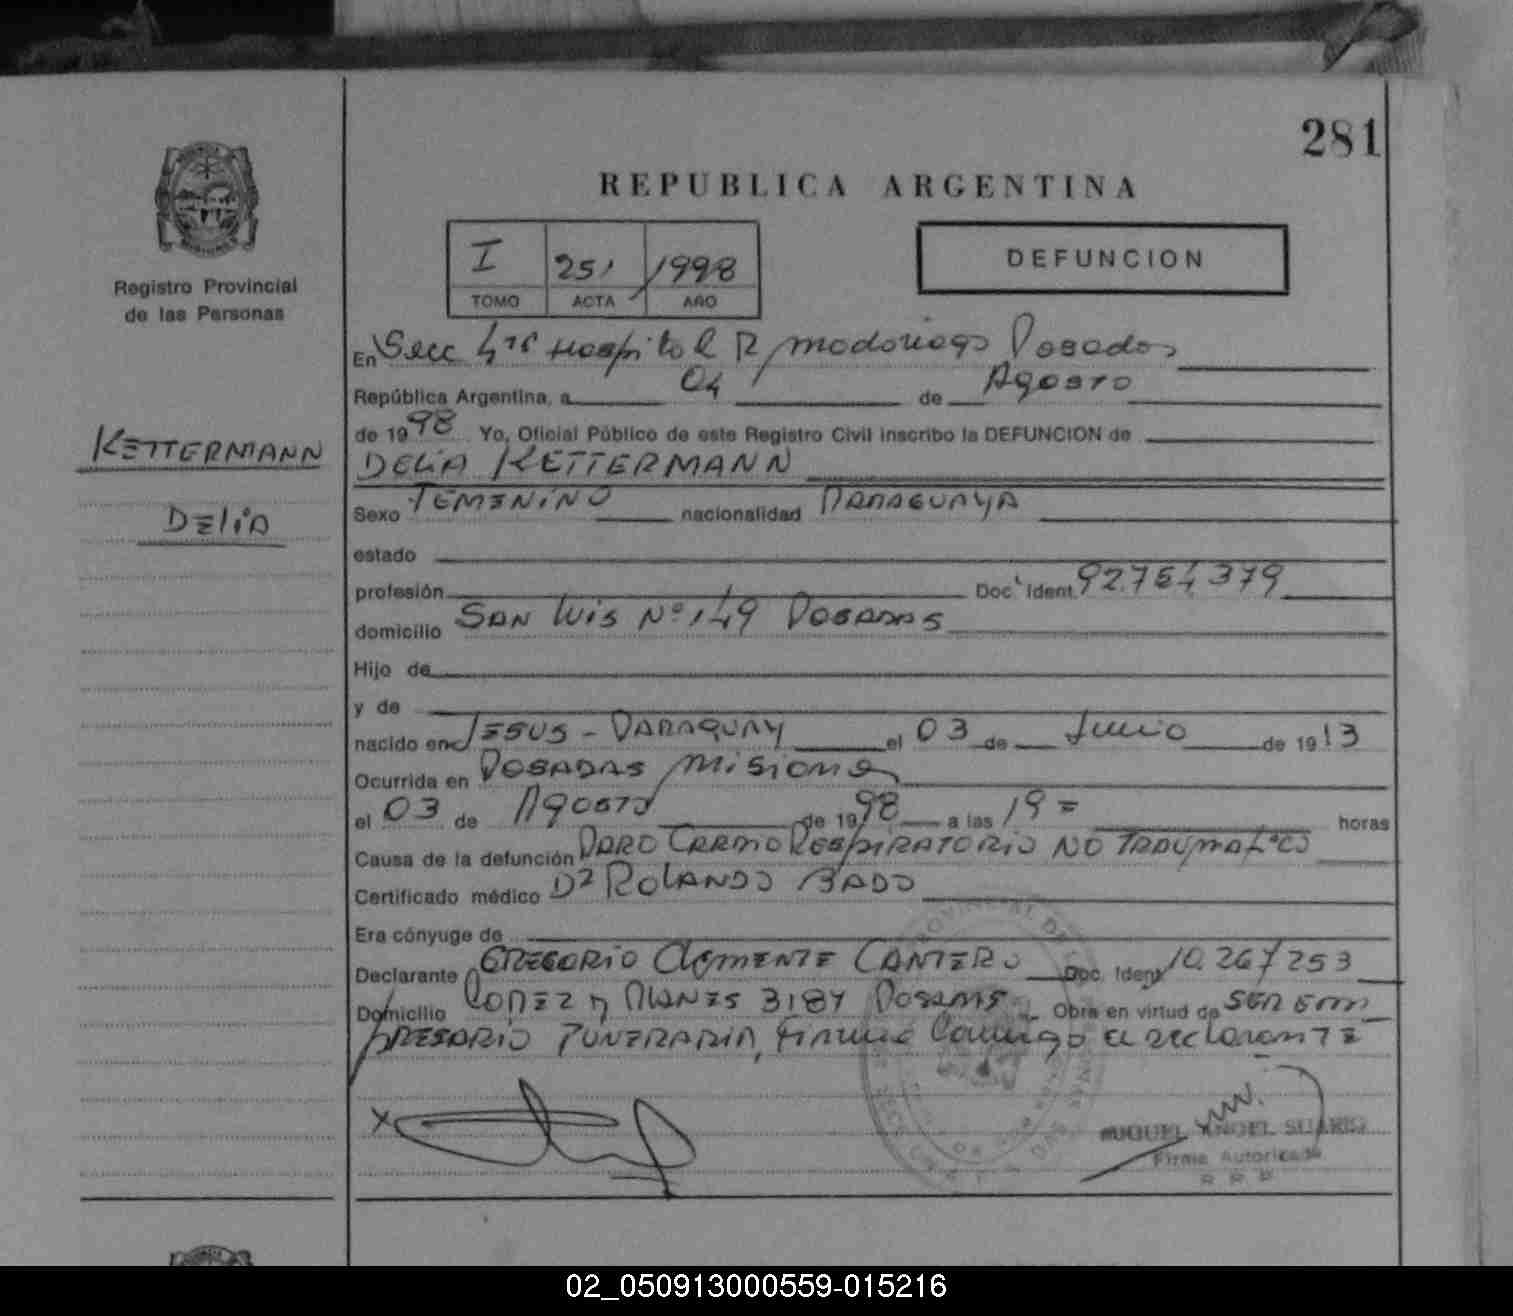 281
REPUBLICA ARGENTINA
Registro Provincial
de las Personas
I 251 1998
TOMO ACTA AÑO
DEFUNCION
KETTERMANN
DELIA
En Secc 4ta Hospital R, madariaga Posadas
República Argentina, a 04 de Agosto
de 1998 Yo, Oficial Público de este Registro Civil inscribo la DEFUNCION de
DELIA KETTERMANN
Sexo FEMENINO nacionalidad PARAGUAYA
estado
profesión Doc. Ident. 92.754.379
domicilio SAN LUIS Nº 149 POSADAS
Hijo de
y de
nacido en JESUS - PARAGUAY el 03 de Junio de 1913
Ocurrida en POSADAS misiones
el 03 de Agosto de 1998 a las 19 = horas
Causa de la defunción PARO CARDIO RESPIRATORIO NO TRAUMATICO
Certificado médico Dr ROLANDO BADO
Era cónyuge de
Declarante GREGORIO CLEMENTE CANTERO Doc. Ident 10.267253
Domicilio LOPEZ Y PLANES 3184 POSADAS Obra en virtud de SER EM
PRESARIO FUNERARIA, Firma Conmigo el declarante
X
MIGUEL ANGEL SUAREZ
Firma Autorizada
02_050913000559-015216